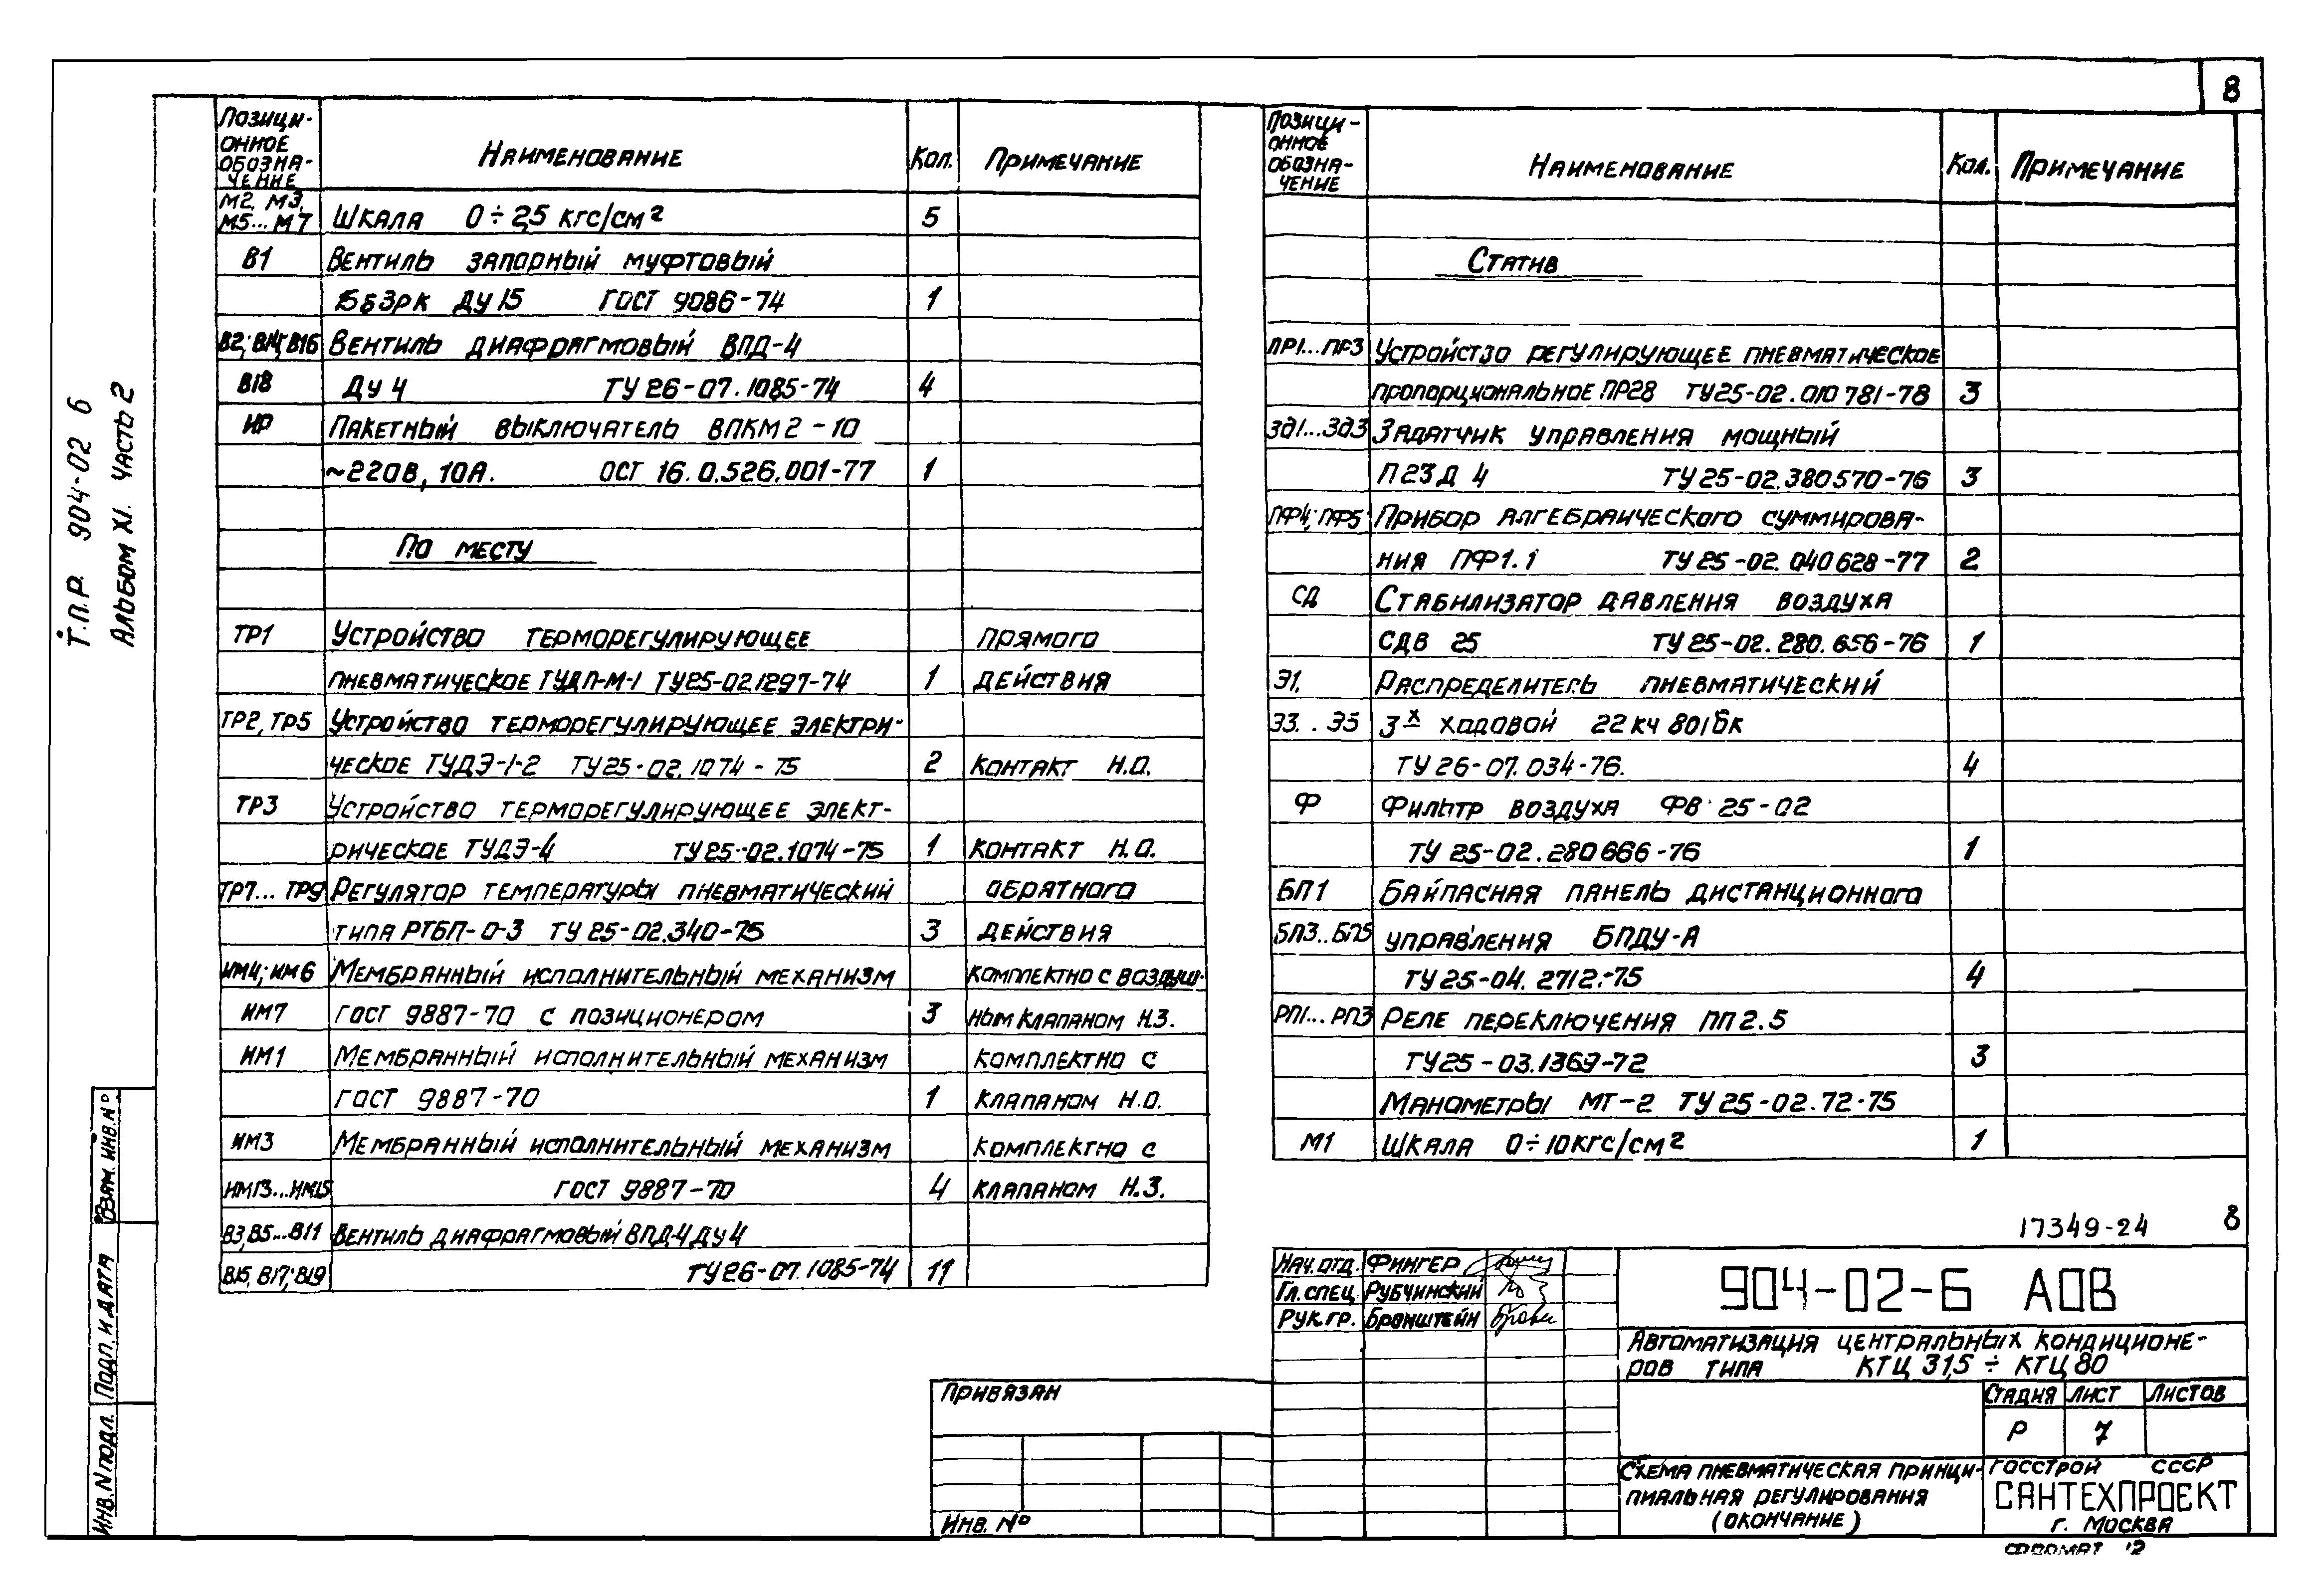 8
Т.П.Р. 904-02 б
Альбом XI. Часть 2
Позици-
онное
обозна-
чение
Наименование
Кол.
Примечание
М2, М3,
М5...М7
Шкала 0÷2,5 кгс/см²
5
В1
Вентиль запорный муфтовый
15Б3рк Ду 15 ГОСТ 9086-74
1
В2; В14; В16
Вентиль диафрагмовый ВПД-4
В18
Ду 4 ТУ 26-07.1085-74
4
ИР
Пакетный выключатель ВПКМ2-10
~220В, 10А. ОСТ 16.0.526.001-77
1
По месту
ТР1
Устройство терморегулирующее
прямого
пневматическое ТУДП-М-1 ТУ25-02.1297-74
1
действия
ТР2, ТР5
Устройство терморегулирующее электри-
ческое ТУДЭ-1-2 ТУ25-02.1074-75
2
контакт Н.О.
ТР3
Устройство терморегулирующее элект-
рическое ТУДЭ-4 ТУ25-02.1074-75
1
контакт Н.О.
ТР7...ТР9
Регулятор температуры пневматический
обратного
типа РТБП-О-3 ТУ 25-02.340-75
3
действия
ИМ4; ИМ6
Мембранный исполнительный механизм
комплектно с воздуш-
ИМ7
ГОСТ 9887-70 с позиционером
3
ным клапаном Н.З.
ИМ1
Мембранный исполнительный механизм
комплектно с
ГОСТ 9887-70
1
клапаном Н.О.
ИМ3
Мембранный исполнительный механизм
комплектно с
ИМ13...ИМ15
ГОСТ 9887-70
4
клапаном Н.З.
В3, В5...В11
Вентиль диафрагмовый ВПД-4 Ду 4
В15, В17; В19
ТУ26-07.1085-74
11
Позици-
онное
обозна-
чение
Наименование
Кол.
Примечание
Статив
ПР1...ПР3
Устройство регулирующее пневматическое
пропорциональное ПР28 ТУ25-02.010781-78
3
ЗД1...ЗД3
Задатчик управления мощный
П23Д 4 ТУ25-02.380570-76
3
ПФ4; ПФ5
Прибор алгебраического суммирова-
ния ПФ1.1 ТУ25-02.040628-77
2
СД
Стабилизатор давления воздуха
СДВ 25 ТУ25-02.280.656-76
1
Э1,
Распределитель пневматический
Э3..Э5
3х ходовой 22кч 801бк
ТУ 26-07.034-76.
4
Ф
Фильтр воздуха ФВ 25-02
ТУ 25-02.280666-76
1
БП1
Байпасная панель дистанционного
БП3..БП5
управления БПДУ-А
ТУ25-04.2712-75
4
РП1...РП3
Реле переключения ПП2.5
ТУ25-03.1369-72
3
Манометры МТ-2 ТУ25-02.72-75
М1
Шкала 0÷10кгс/см²
1
17349-24
8
Нач.отд. Фингер
Гл.спец Рубчинский
Рук.гр. Бронштейн
904-02-Б АОВ
Автоматизация центральных кондиционе-
ров типа КТЦ 31,5 ÷ КТЦ 80
Стадия
Лист
Листов
Р
7
Схема пневматическая принци-
пиальная регулирования
(окончание)
Госстрой СССР
САНТЕХПРОЕКТ
г. Москва
Формат 12
Привязан
Инв. №
Взам. инв. №
Подп. и дата
Инв. N подл.